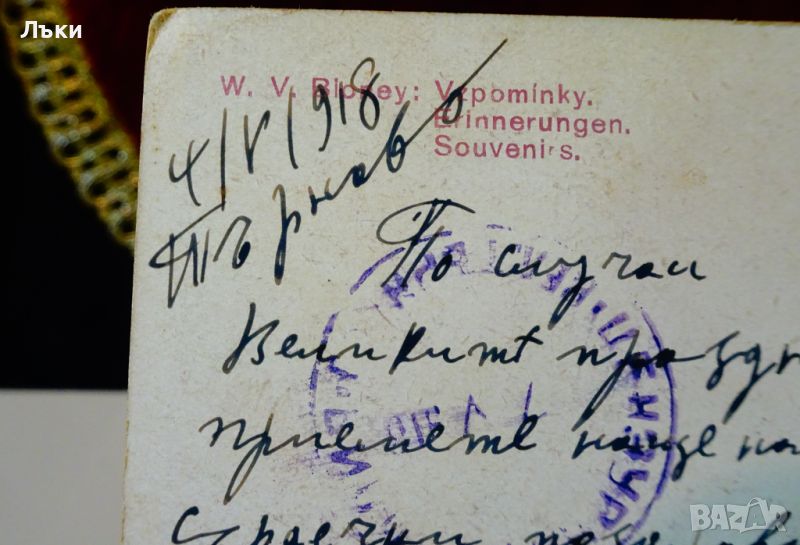 Лъки
W. V. Vzpomínky.
Erinnerungen.
Souvenirs.
4/V/1918
Търново
По случаи
Великитѣ празд
приемете наще
Сърдечни
BAZAR